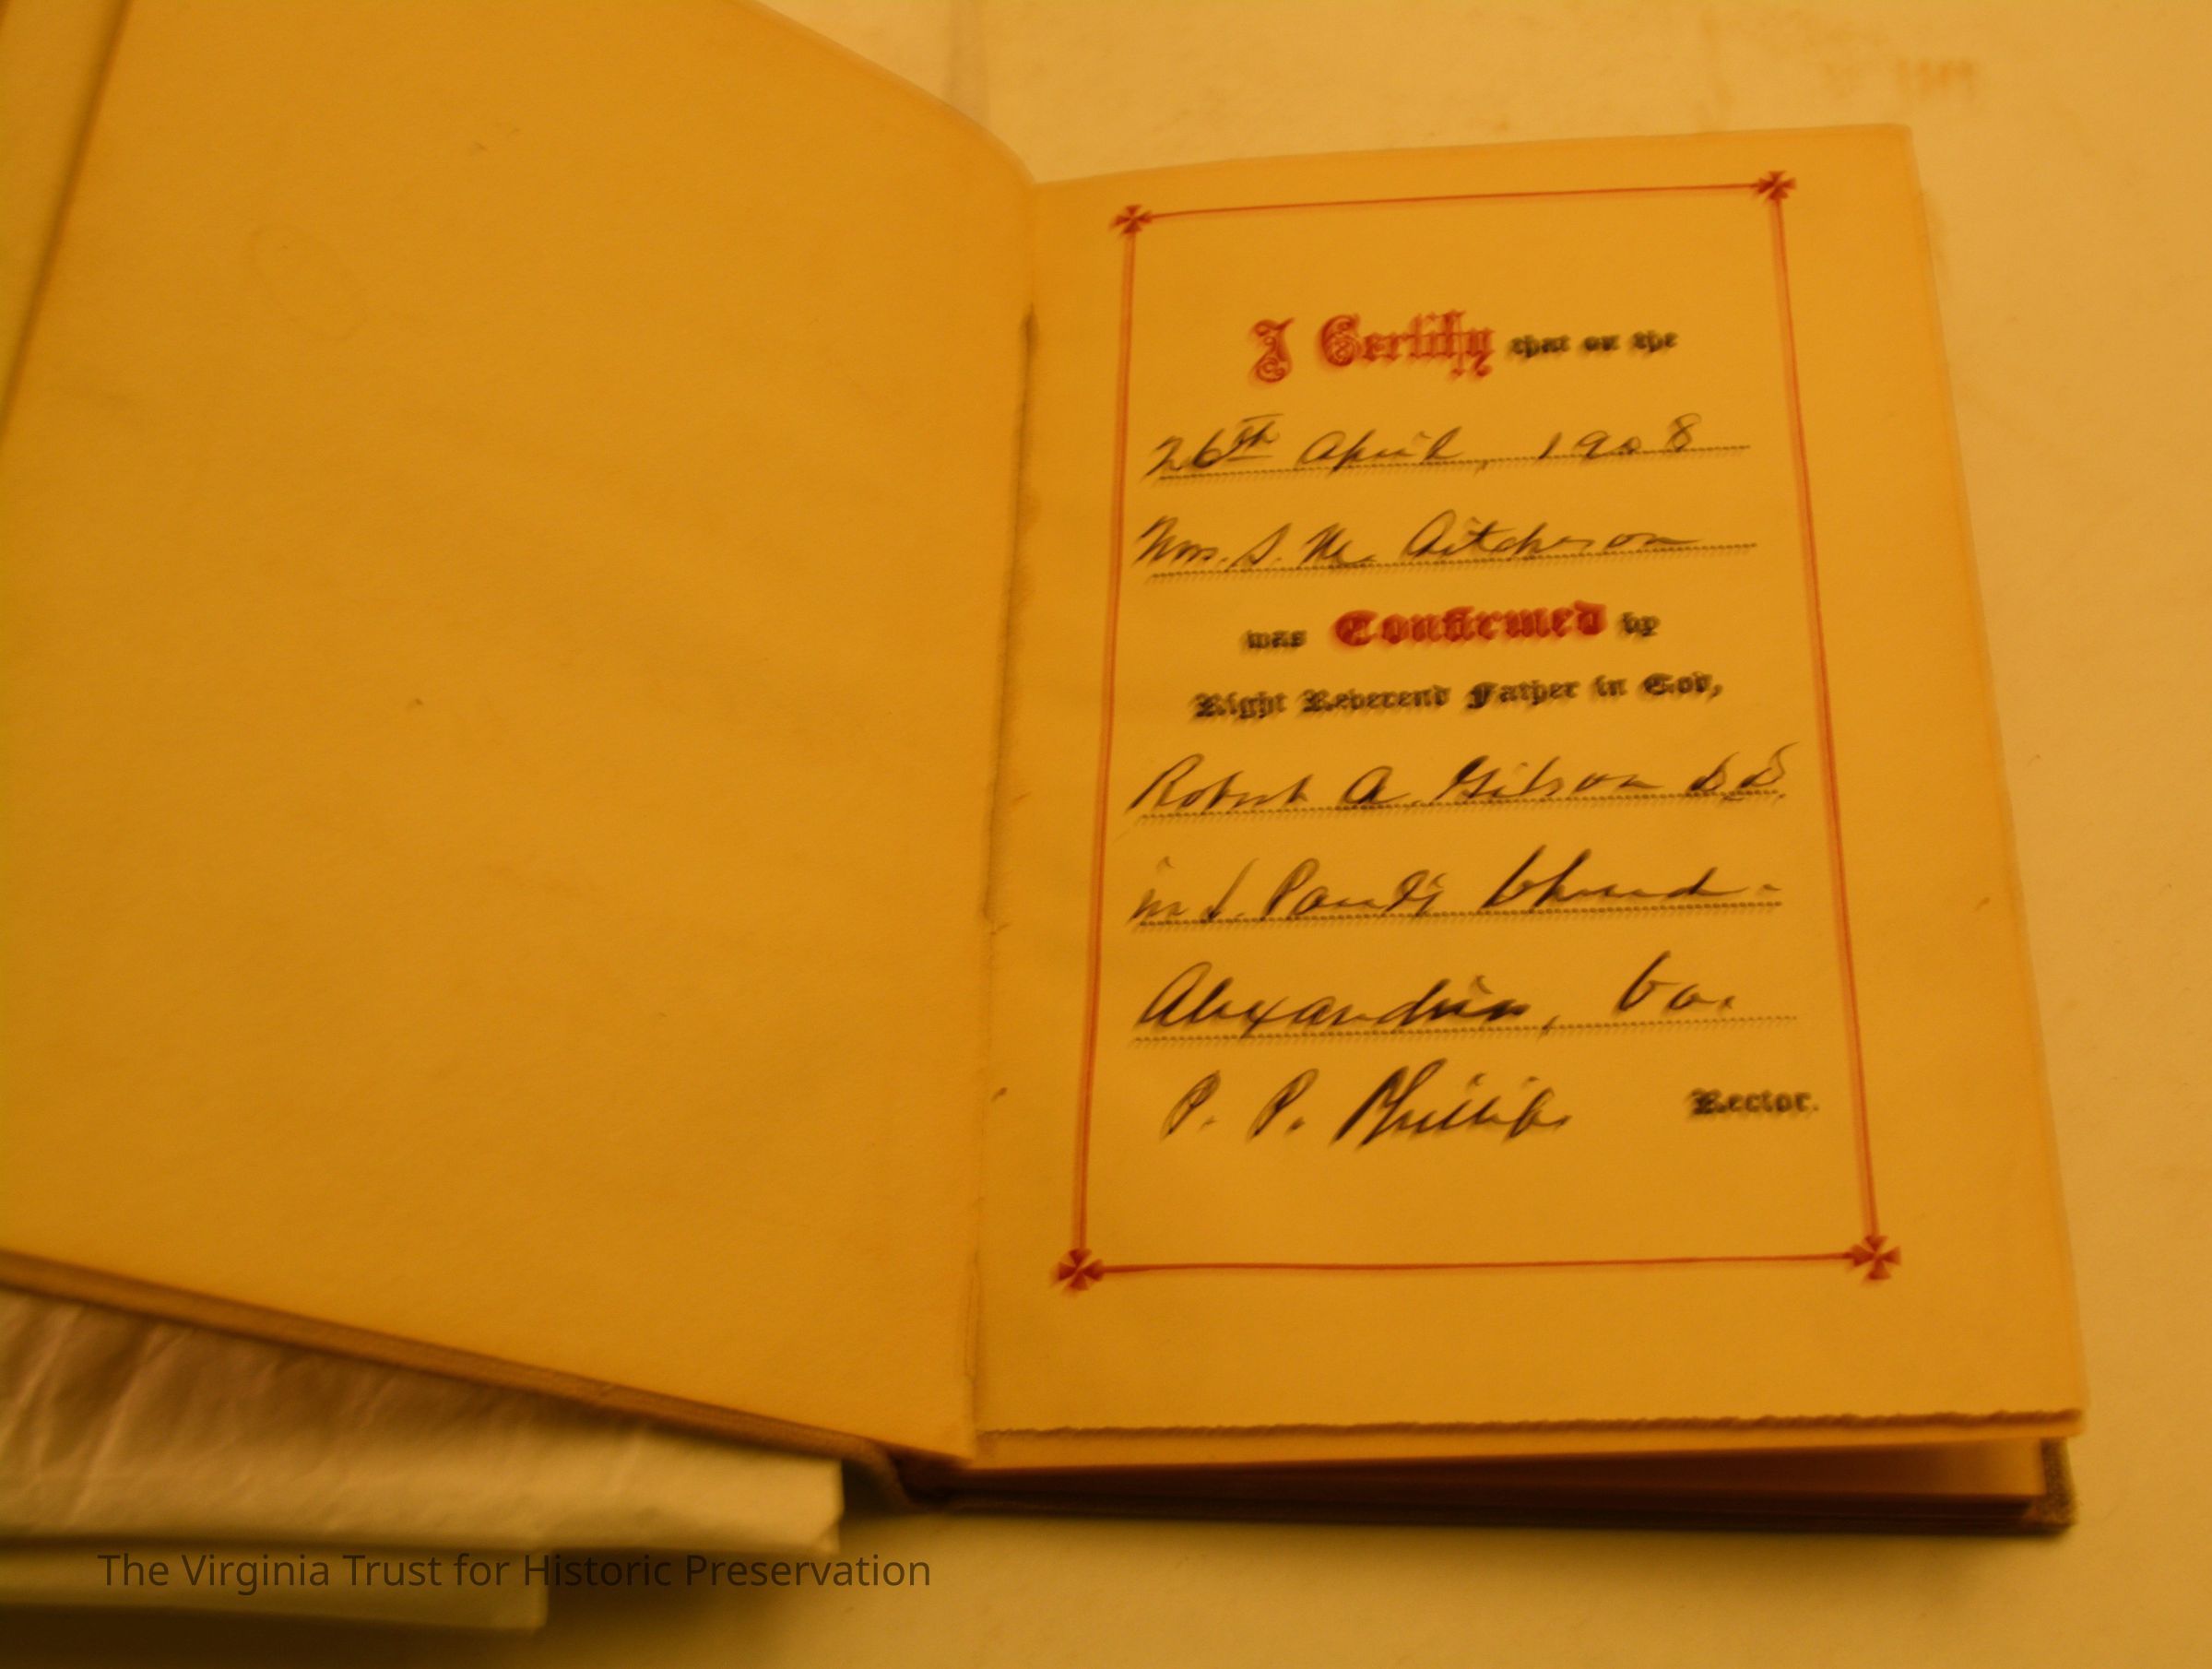 I Certify that on the
26th April, 1908
Mrs. S. M. Aitcheson
was Confirmed by
Right Reverend Father in God,
Robert A. Gibson D.D.
in S. Paul's Church -
Alexandria, Va.
P. P. Phillips Rector.
The Virginia Trust for Historic Preservation